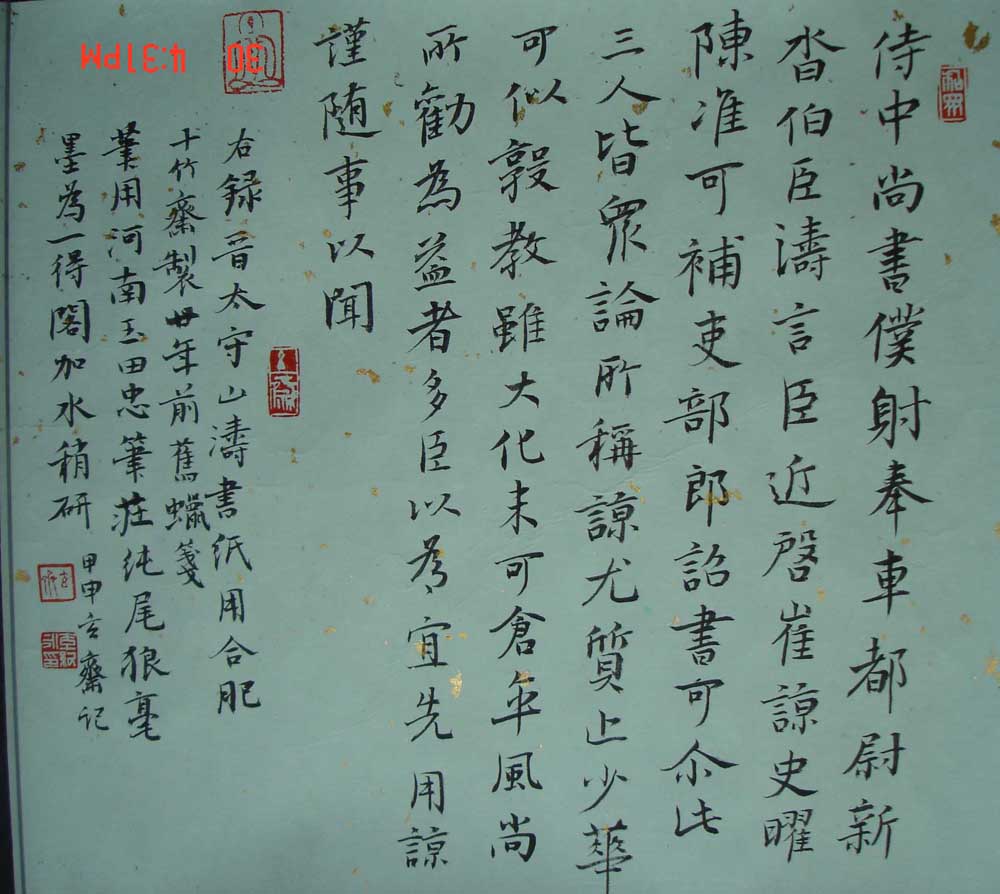 侍中尚書僕射奉車都尉新
沓伯臣濤言臣近啓崔諒史曜
陳准可補吏部郎詔書可尒此
三人皆眾論所稱諒尤質止少華
可似敦教雖大化未可倉卒風尚
所勸為益者多臣以為宜先用諒
謹随事以聞
右録晉太守山濤書紙用合肥
十竹齋製廿年前舊蠟箋
筆用河南玉田忠筆莊純尾狼毫
墨為一得閣加水稍研
甲申玄齋记
30 4:31PM